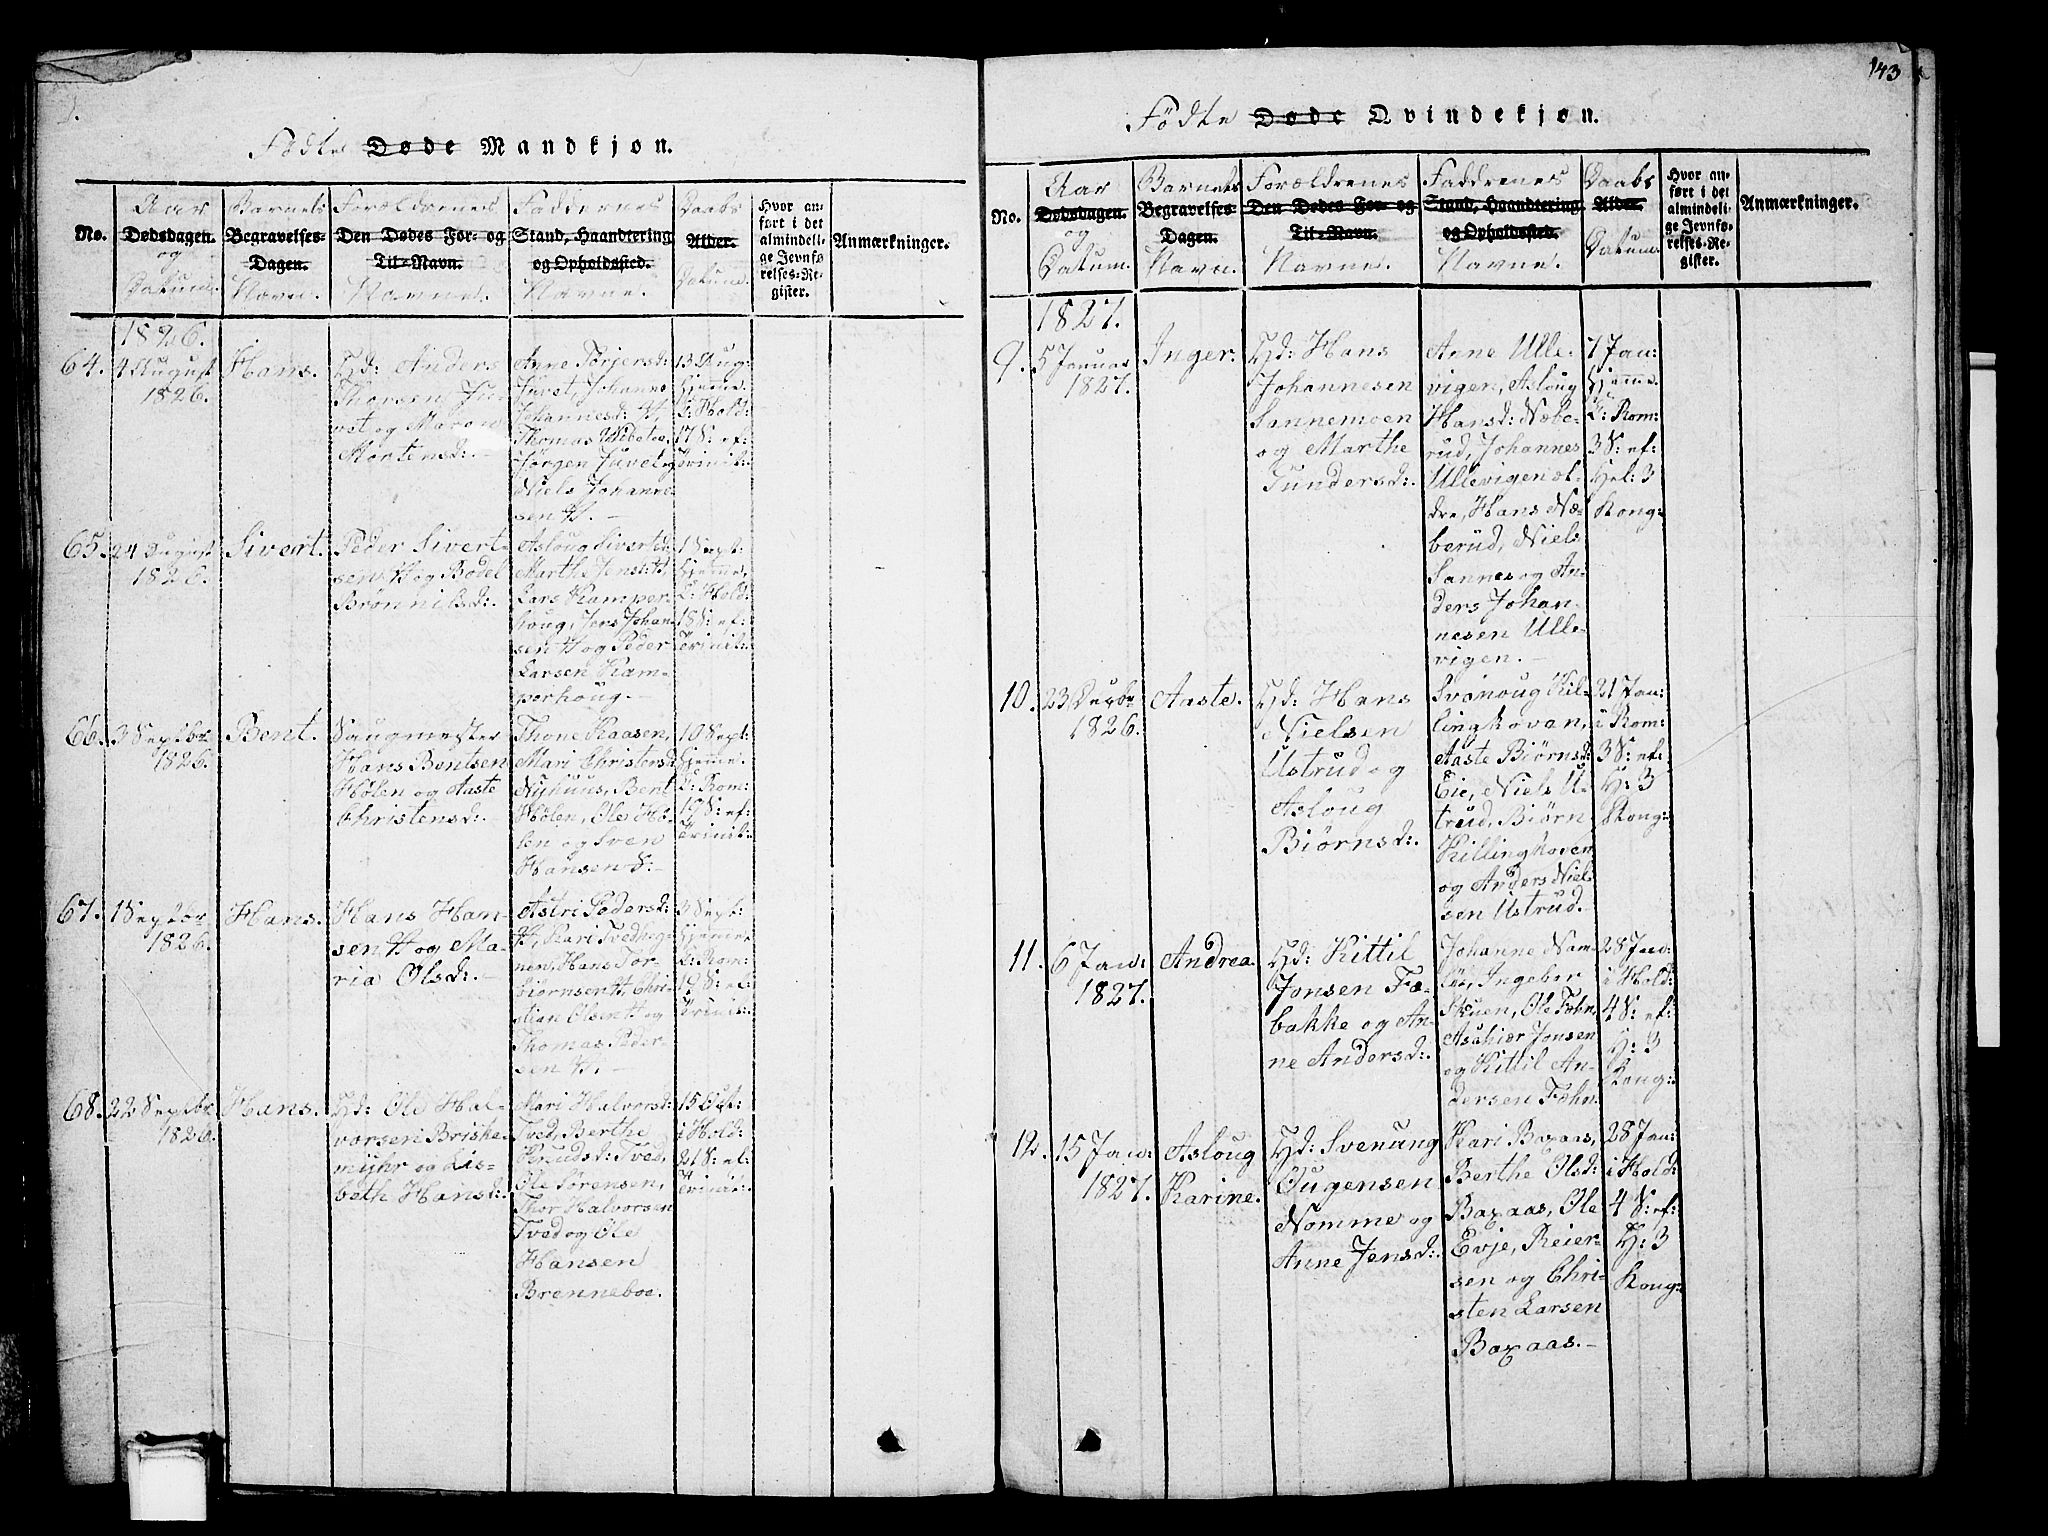 143
Fødte Døde Mandkjøn.
No.
Aar
Dødsdagen.
og
Datum.
Barnets
Begravelses-
Dagen.
Navn.
Forældrenes
Den Dødes For- og
Til-Navn.
Navne.
Faddernes
Stand, Haandtering
og Opholdssted.
Navne.
Daabs
Alder.
Datum.
Hvor an-
ført i det
almindeli-
ge Jevnfø
relses-Re-
gister.
Anmærkninger.
1826.
64.
4 August
1826.
Hans.
Gd: Anders
Thorsen Ju-
vet og Maren
Mortensd:.
Anne Torjersd:
Juvet, Johanne
Johannesd: H,
Thomas Vibeto,
Jørgen Juvet,
Niels Johanne-
sen H.
13 Aug:
hjemme.
i: Hold:
17 S: ef:
Trinit:
65.
24 August
1826.
Sivert.
Peder Sivert-
sen H og Bodel
Brønnilsd:.
Asloug Sivertsd:
Marthe Jensd: H,
Lars Kamper-
houg, Jens Johan-
sen H og Peder
Larsen Kam-
perhoug.
1 Sept:
hjemme,
i: Hold:
18 S: ef:
Trinit:
66.
3 Septbr
1826.
Bent.
Saugmester
Hans Bentsen
Hølen og Aaste
Christensd:.
Thone Kaasen,
Mari Christensd
Nyhuus, Bent
Hølen, Ole Hø-
len og Sven
Hansen S:
10 Sept:
hjemme.
i: Rom:
19 S: ef:
Trinit:
67.
1 Septbr
1826.
Hans.
Hans Han-
sen H og Ma-
ria Olsd:.
Astri Pedersd:
H, Kari Tvedheg-
nen, Hans Tor-
biørnsen H, Chri-
stian Olsen H og
Thomas Peder-
sen H.
3 Sept:
hjemme,
i: Rom:
19 S: ef:
Trinit:
68.
22 Septbr
1826.
Hans.
Gd: Ole Hal-
vorsen Briske-
myhr og Lis-
beth Hansd:
Mari Halvorsd:
Tved, Berthe
Knudsd: Tved,
Ole Sørensen,
Thor Halvorsen
Tved og Ole
Hansen
Brenneboe.
15 Oct:
i Hold:
21 S: ef:
Trinit:
Fødte Døde Qvindekjøn.
No.
Aar
Dødsdagen.
og
Datum.
Barnets
Begravelses-
Dagen.
Navn.
Forældrenes
Den Dødes For- og
Til-Navn.
Navne.
Faddrenes
Stand, Haandtering
og Opholdssted.
Navne.
Daabs
Alder.
Datum.
Hvor an-
ført i det
almindeli-
ge Jevnfø-
relses-Re-
gister.
Anmærkninger.
1827.
9.
5 Januar
1827.
Inger.
Gd: Hans
Johannesen
Sannemoen
og Marthe
Gundersd:.
Anne Ulle-
vigen, Asloug
Hansd: Næbe-
rud, Johannes
Ullevigen æl-
dre, Hans Næ-
berud, Niels
Sannes og An-
ders Johan-
nesen Ulle-
vigen.
7 Jan:
hjemme.
i: Rom:
3 S: ef:
Hel: 3
Kong:
10.
23 Decbr
1826.
Aaste.
Gd: Hans
Nielsen
Ustrud og
Asloug
Biørnsd:.
Svanoug Kil-
lingkovan,
Aaste Biørnsd:
Eie, Niels U-
trud, Biørn
Killingkoven
og Anders Niel-
sen Ustrud.
21 Jan:
i Rom:
3 S: ef:
H: 3
Kong:
11.
6 Jan:
1827.
Andrea.
Gd: Kittil
Jonsen Fæ-
bakke og An-
ne Andersd:.
Johanne Nam-
løs, Ingeber
Skuen, Ole Fæhn,
Asahiær Jonsen
og Kittil An-
dersen Fæhn.
28 Jan:
i Hold:
4 S: ef:
H: 3
Kong:
12.
15 Jan:
1827.
Asloug
Karine.
Gd: Svenung
Ougensen
Nomme og
Anne Jensd:.
Kari Baxaas,
Berthe Olsd:
Baxaas, Ole
Evje, Reier-
sen og Chri-
sten Larsen
Baxaas.
28 Jan:
i Hold:
4 S: ef:
H: 3
Kong: